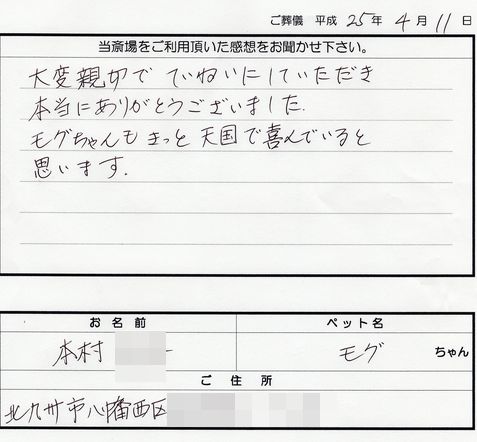 ご葬儀 平成 25 年 4 月 11 日
当斎場をご利用頂いた感想をお聞かせ下さい。
大変親切で ていねいにしていただき
本当にありがとうございました.
モグちゃんも きっと 天国で喜んでいると
思います.
お名前 ペット名
本村 モグ ちゃん
ご住所
北九州市八幡西区